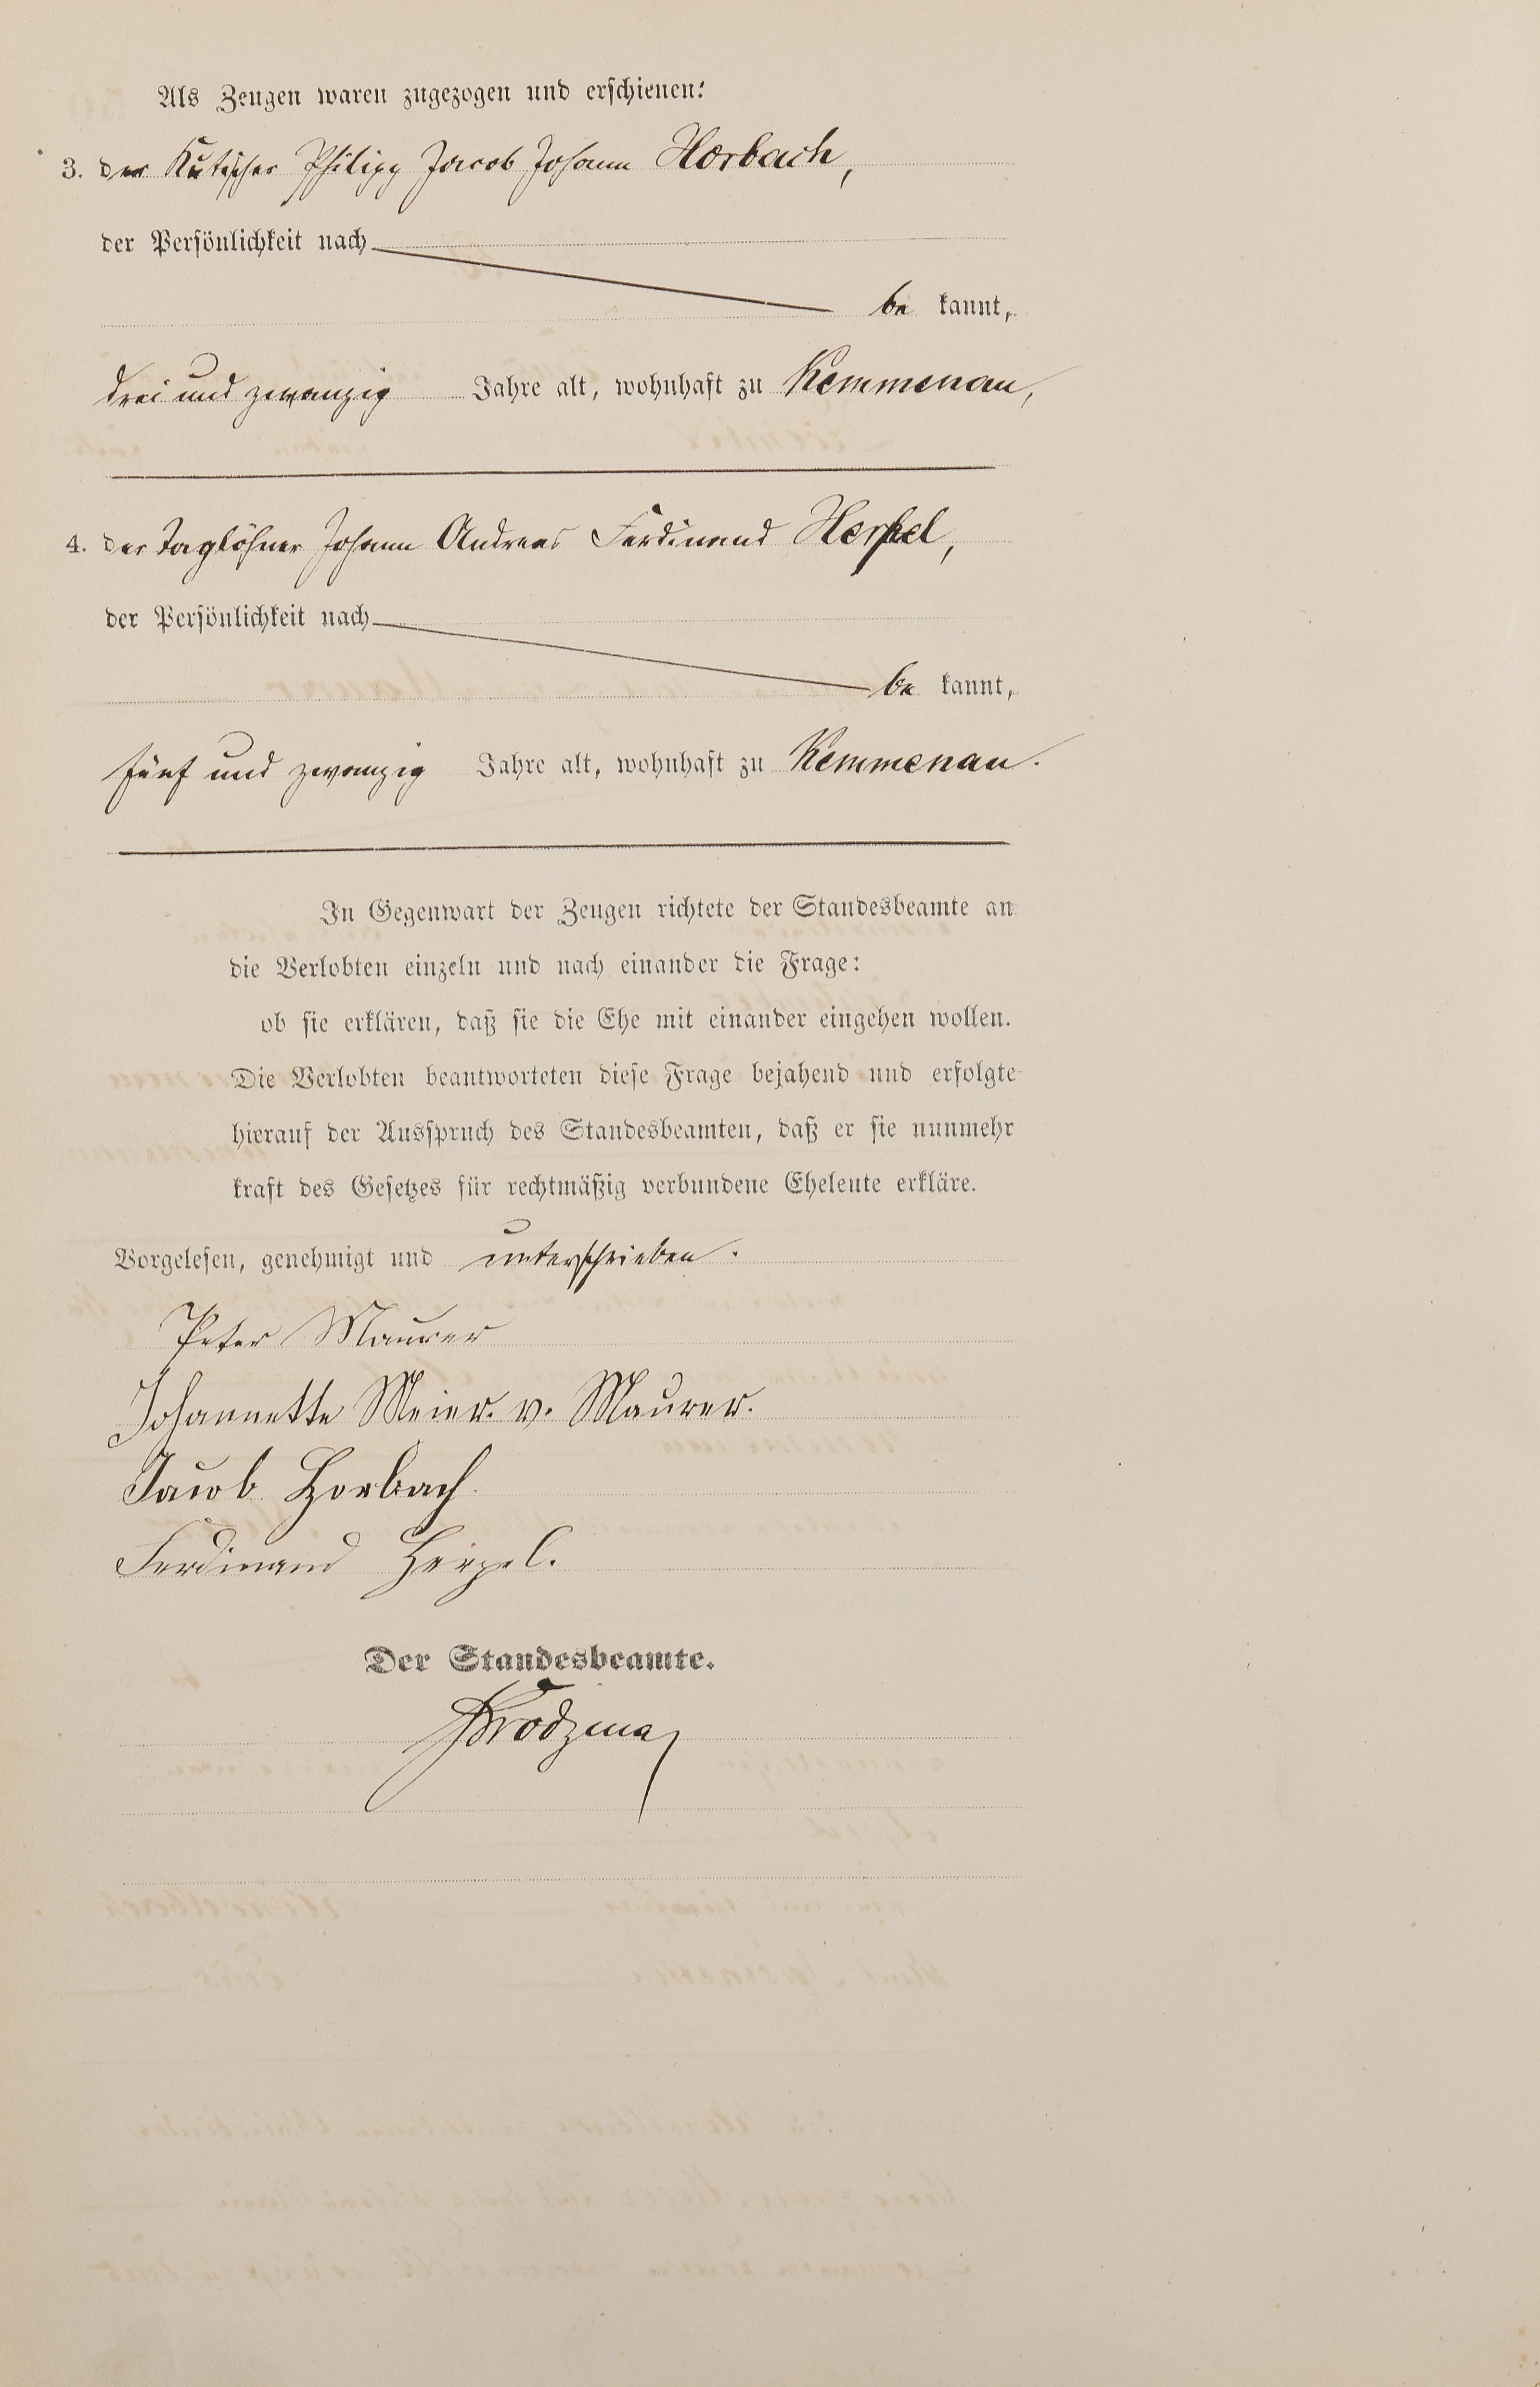 Als Zeugen waren zugezogen und erschienen:
3. der Kutscher Philipp Jacob Johann Horbach,
der Persönlichkeit nach
be kannt,
drei und zwanzig Jahre alt, wohnhaft zu Kemmenau,
4. der Taglöhner Johann Andreas Ferdinand Herpel,
der Persönlichkeit nach
be kannt,
fünf und zwanzig Jahre alt, wohnhaft zu Kemmenau.
In Gegenwart der Zeugen richtete der Standesbeamte an
die Verlobten einzeln und nach einander die Frage:
ob sie erklären, daß sie die Ehe mit einander eingehen wollen.
Die Verlobten beantworteten diese Frage bejahend und erfolgte
hierauf der Ausspruch des Standesbeamten, daß er sie nunmehr
kraft des Gesetzes für rechtmäßig verbundene Eheleute erkläre.
Vorgelesen, genehmigt und unterschrieben.
Peter Maurer
Johannette Meier. v. Maurer.
Jacob Horbach.
Ferdinand Herpel.
Der Standesbeamte.